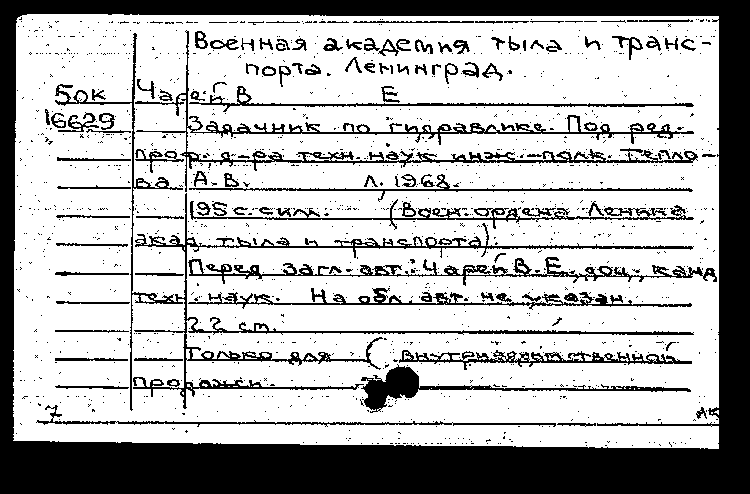 Военная академия тыла и транс-
порта. Ленинград.
50к Чарей, В Е
16629 Задачник по гидравлике. Под ред.
проф. д-ра техн. наук инж.-полк. Тепло-
ва А.В. Л, 1968.
195 с. с илл. (Воен. ордена Ленина
акад тыла и транспорта).
Перед загл. авт.: Чарей В.Е., доц., канд
техн. наук. На обл. авт. не указан.
22 см.
Только для внутриведомственной
продажи.
7